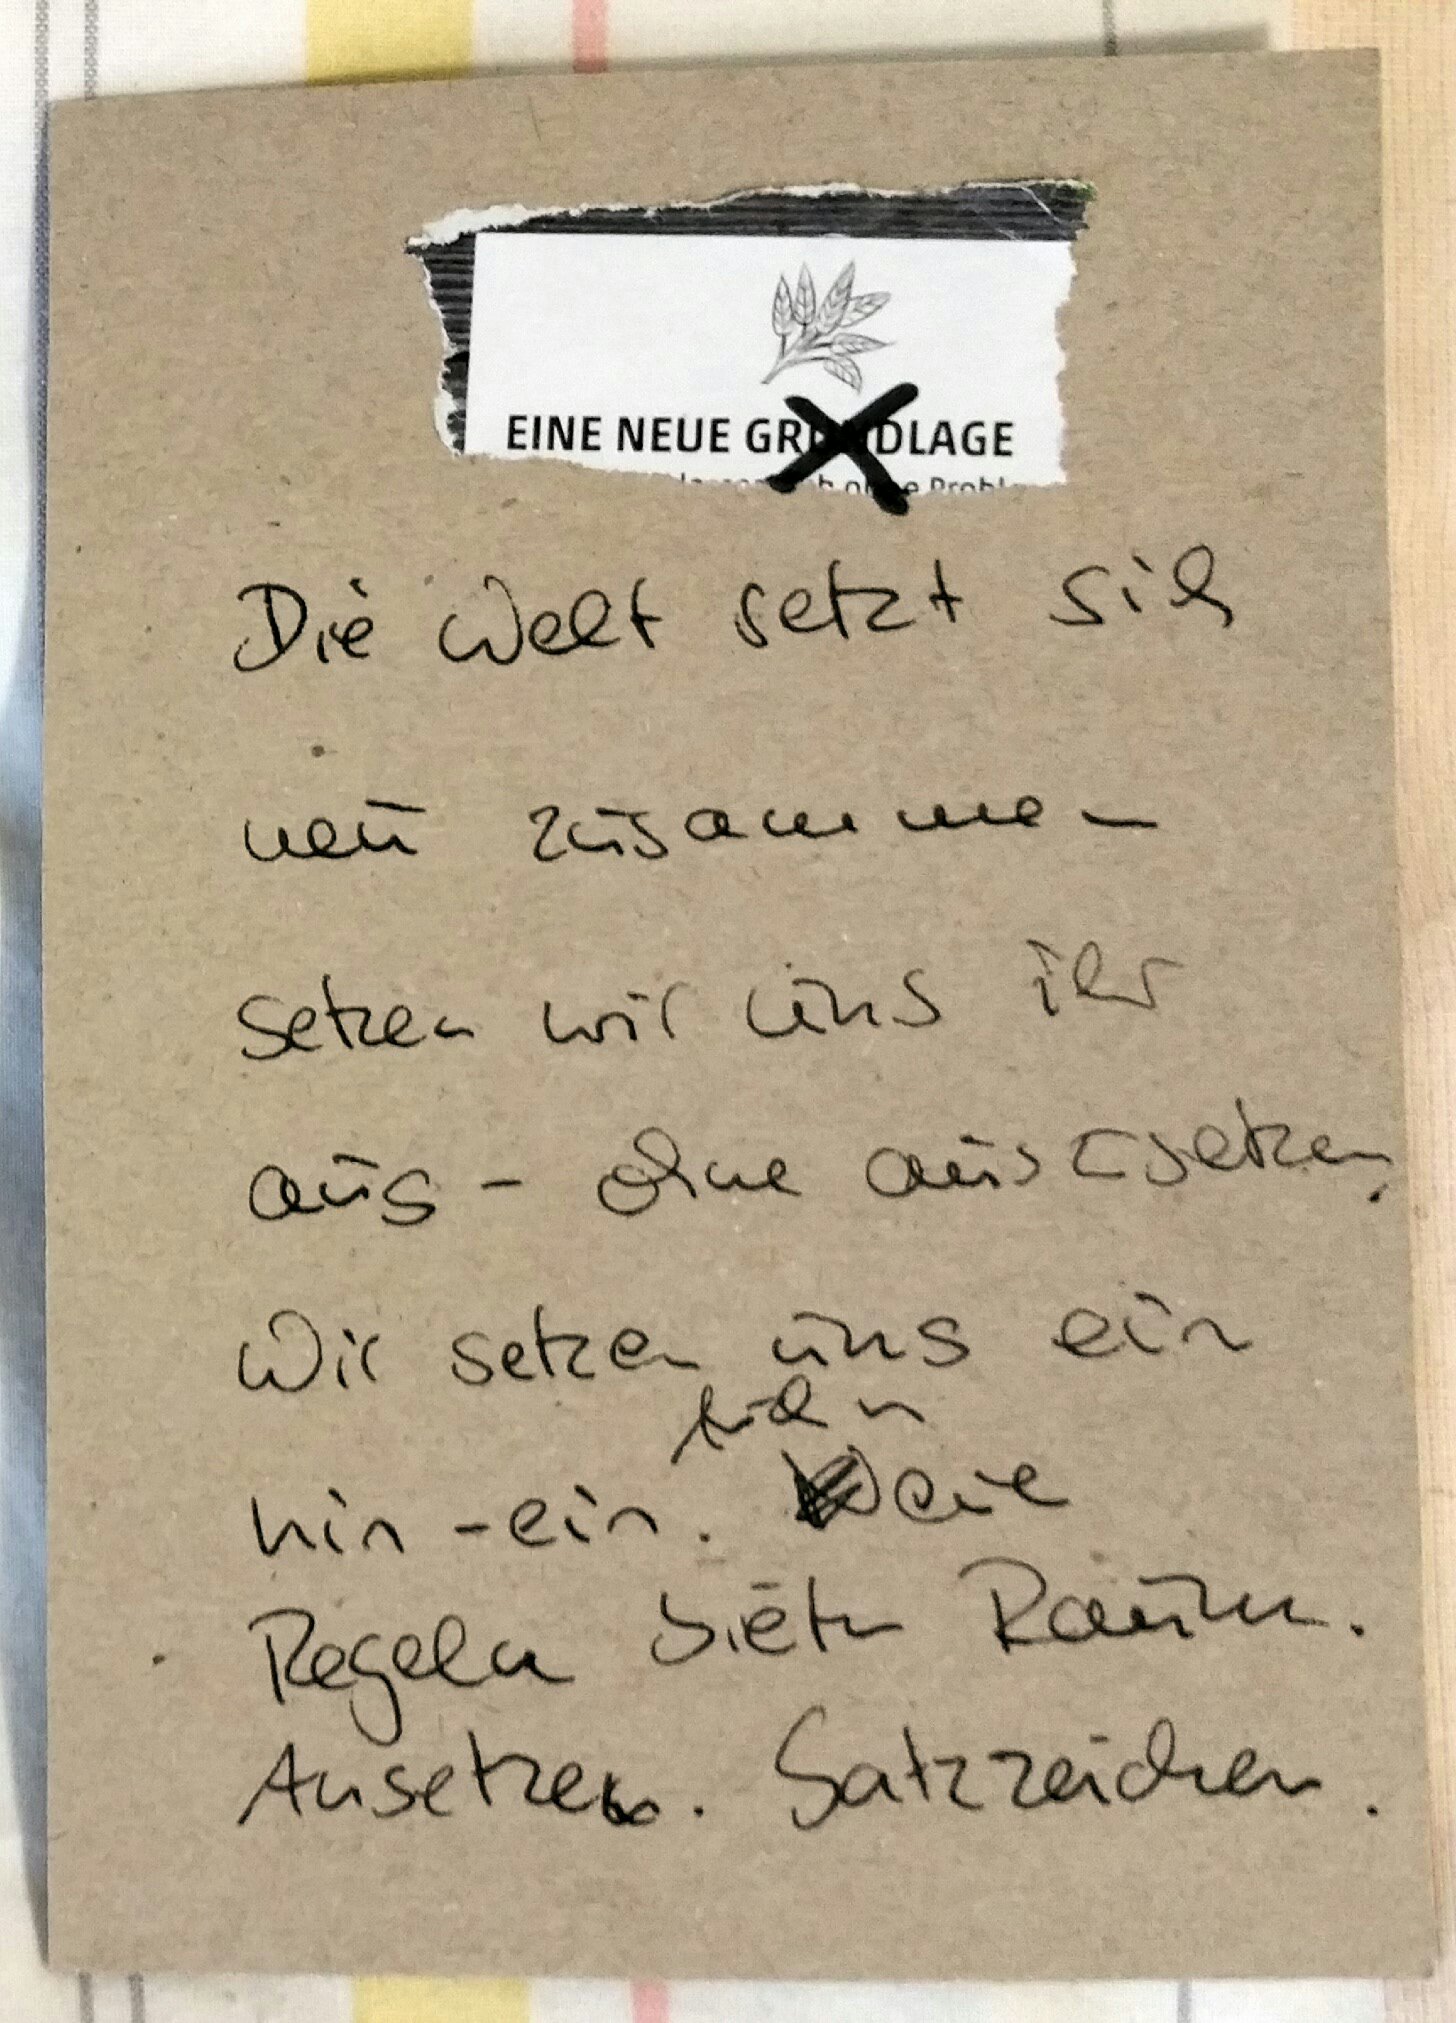 EINE NEUE GRUNDLAGE
Die Welt setzt sich
neu zusammen
setzen wir uns ihr
aus - ohne auszusetzen.
Wir setzen uns ein
hin-ein.
Regeln bieten Raum.
Ansetzen. Satzzeichen.